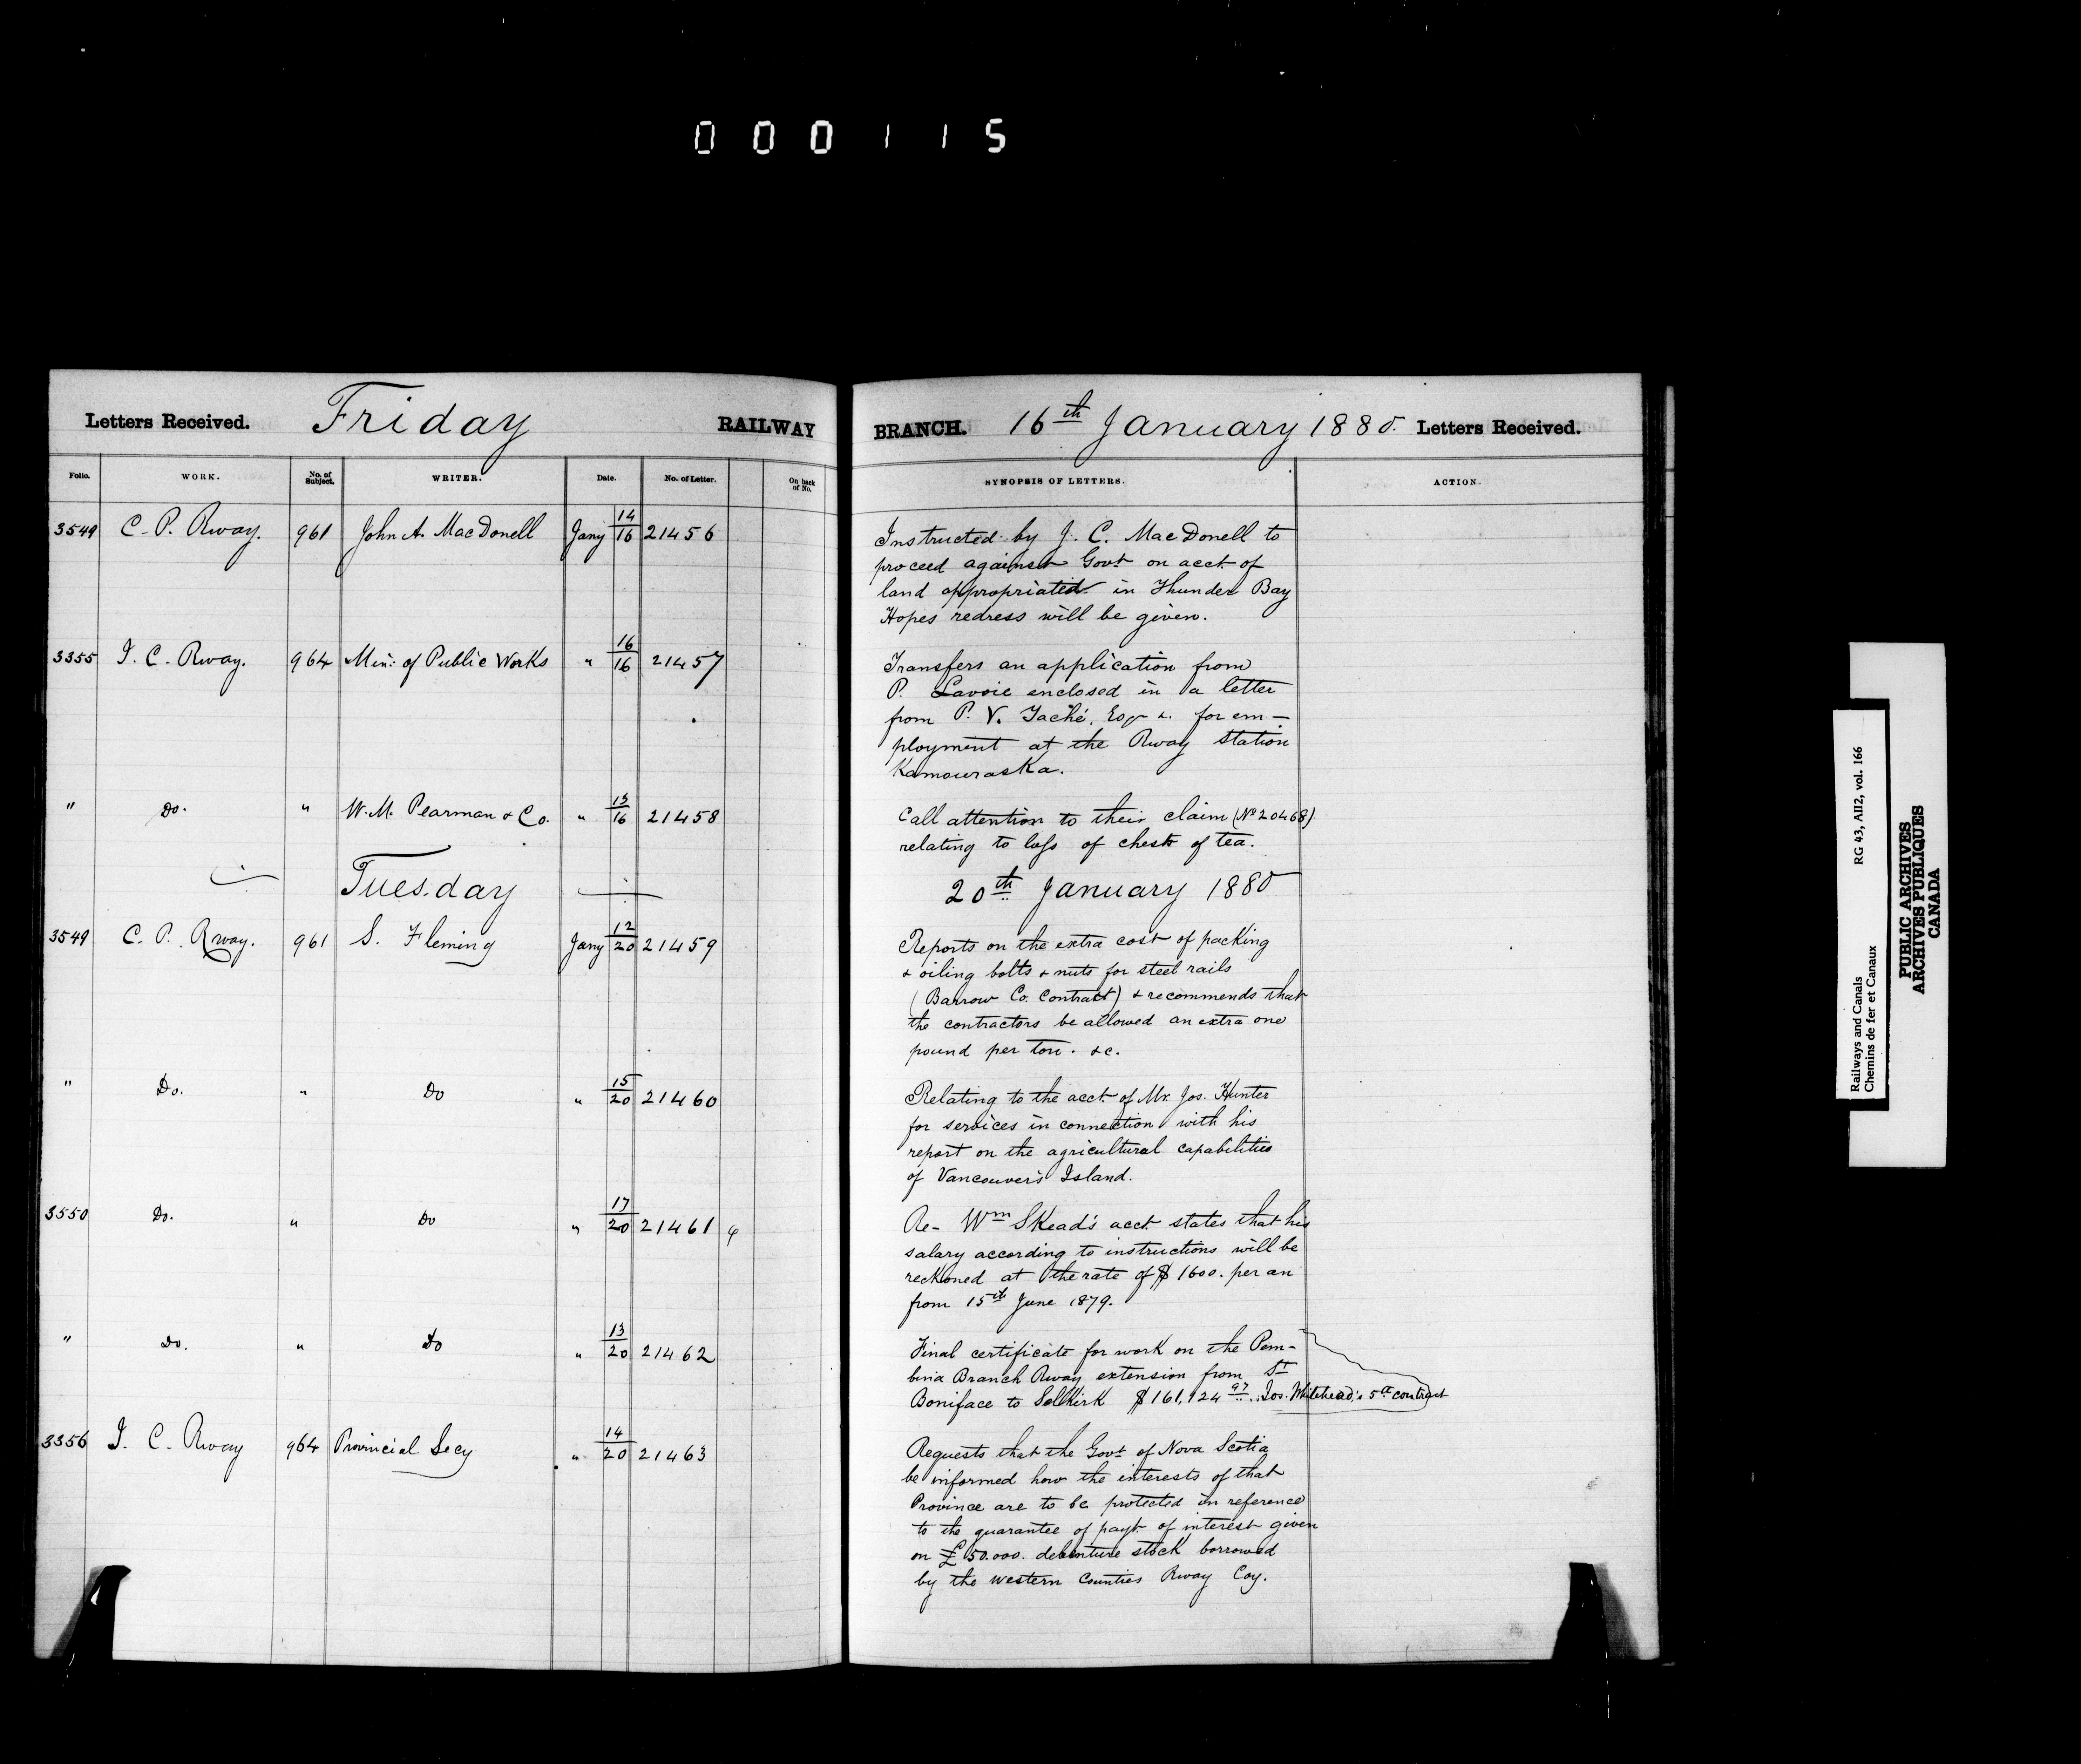 000115
Letters Received. Friday RAILWAY BRANCH. 16th January 1880. Letters Received.
Folio. WORK. No. of Subject. WRITER. Date. No. of Letter. On back of No. SYNOPSIS OF LETTERS. ACTION.
3549 C. P. Rway. 961 John A. MacDonell Jany 14/16 21456
Instructed by J. C. MacDonell to
proceed against Govt on acct of
land appropriated in Thunder Bay
Hopes redress will be given.
3355 I. C. Rway. 964 Min: of Public Works " 16/16 21457
Transfers an application from
P. Lavoie enclosed in a letter
from P. V. Taché, Esqr for em-
ployment at the Rway station
Kamouraska.
" Do. " W. M. Pearman & Co. " 13/16 21458
Call attention to their claim (No 20468)
relating to loss of chest of tea.
Tuesday 20th January 1880
3549 C. P. Rway. 961 S. Fleming Jany 12/20 21459
Reports on the extra cost of packing
& oiling bolts & nuts for steel rails
(Barrow Co. Contract) & recommends that
the contractors be allowed an extra one
pound per ton. &c.
" Do. " Do " 15/20 21460
Relating to the acct. of Mr. Jos. Hunter
for services in connection with his
report on the agricultural capabilities
of Vancouver's Island.
3550 Do. " Do " 17/20 21461
Re- Wm Skead's acct. states that his
salary according to instructions will be
reckoned at the rate of $1600. per an
from 15th June 1879.
" Do. " Do " 13/20 21462
Final certificate for work on the Pem-
bina Branch Rway extension from St
Boniface to Selkirk $161,124 97 Jos. Whitehead's 5a contract
3356 I. C. Rway 964 Provincial Secy " 14/20 21463
Requests that the Govt of Nova Scotia
be informed how the interests of that
Province are to be protected in reference
to the guarantee of payt. of interest given
on £50.000. debenture stock borrowed
by the Western Counties Rway Coy.
Railways and Canals RG 43, AII2, vol. 166
Chemins de fer et Canaux
PUBLIC ARCHIVES
ARCHIVES PUBLIQUES
CANADA